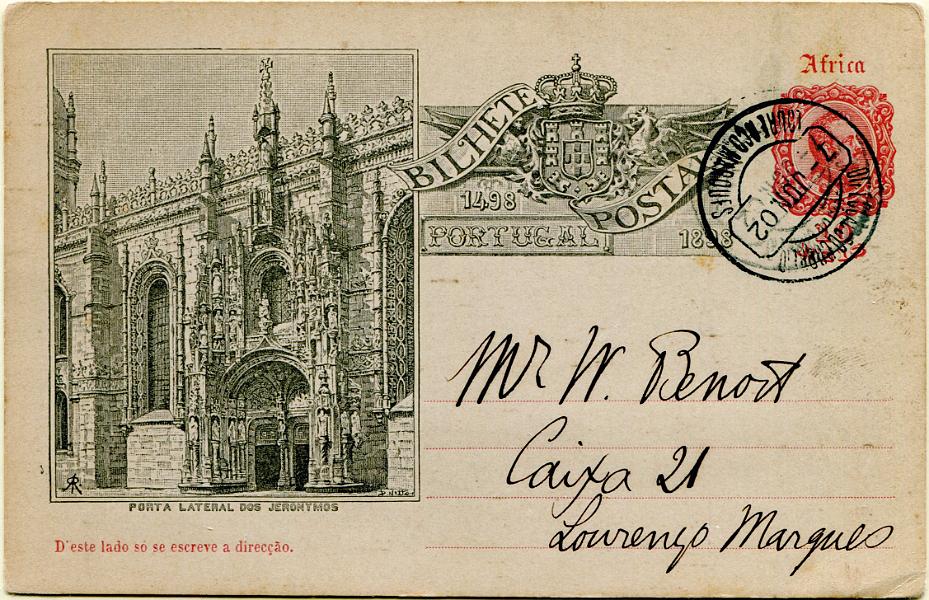 Africa
BILHETE POSTAL
1498
PORTUGAL 1898
LOURENÇO MARQUES
02
Mr W. Benoit
Caixa 21
Lourenço Marques
PORTA LATERAL DOS JERONYMOS
D'este lado só se escreve a direcção.